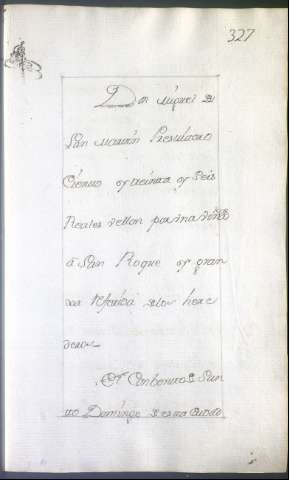 327
Don Miguel de
San Martin Presvitero
Ciento y treinta y seis
Reales vellon por una
a San Roque y gran
de los here
deros
El Conbento de San
to Domingo de esta Ciudad